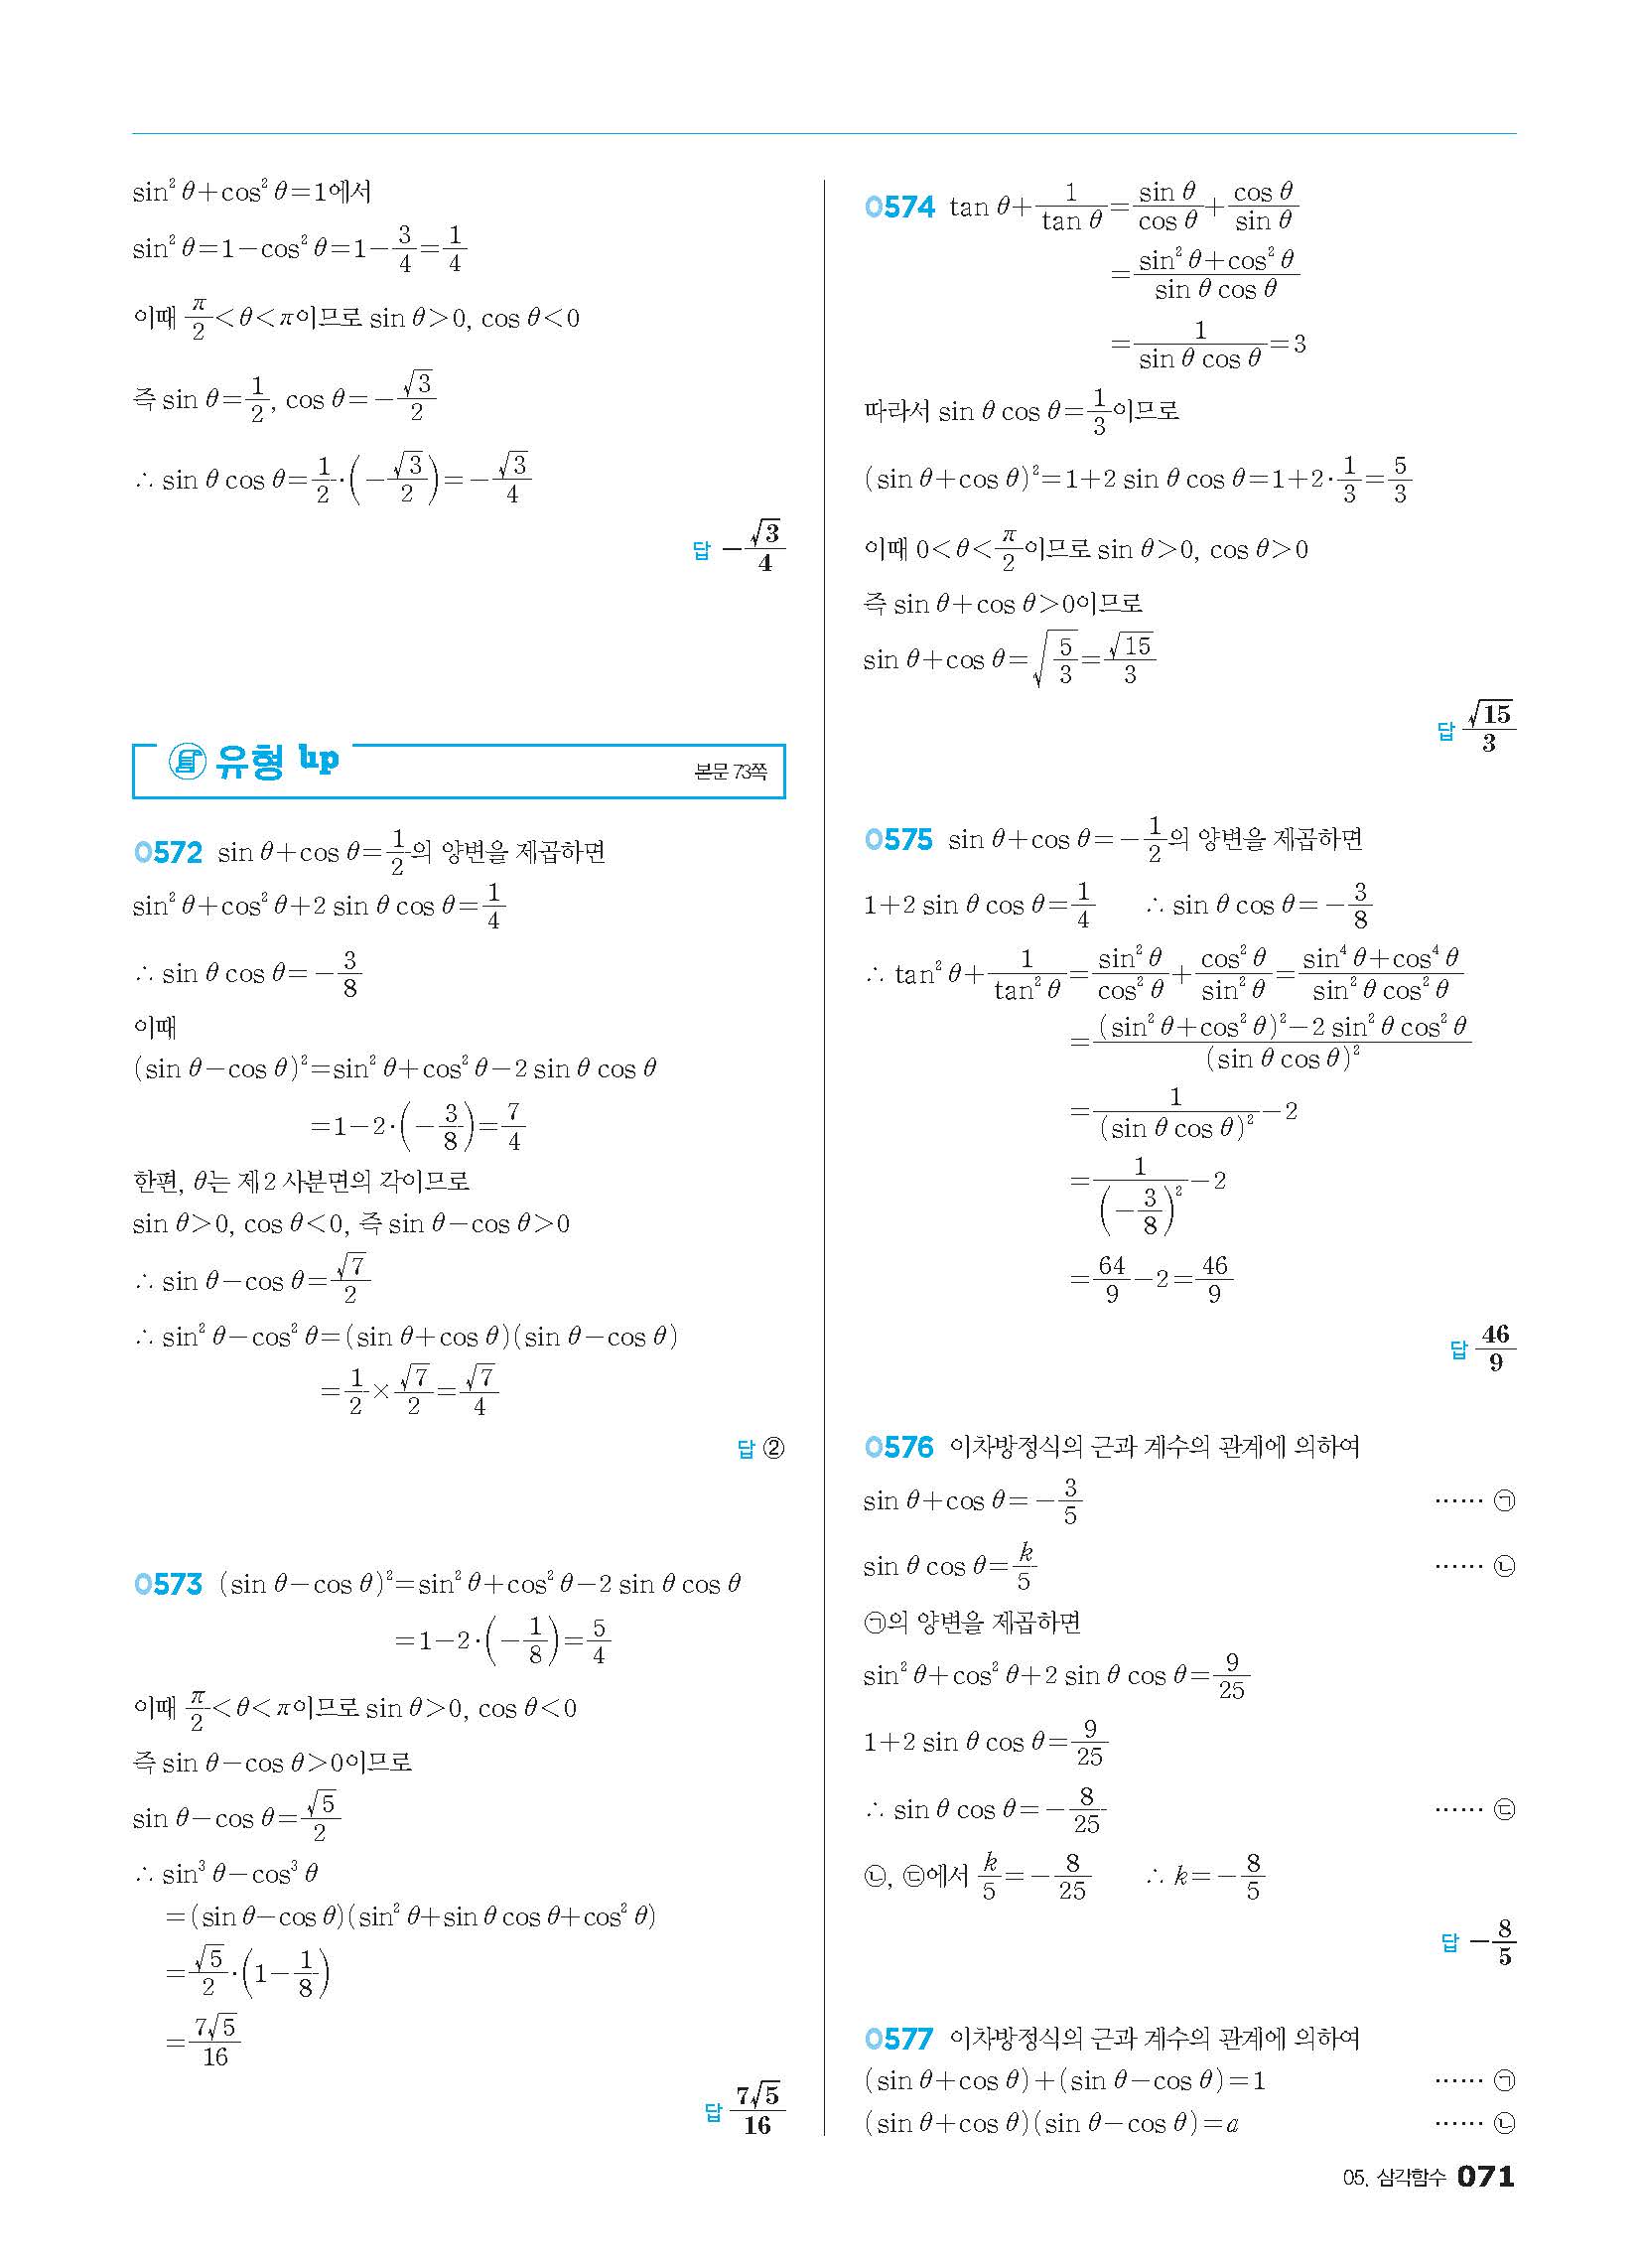 sin² θ+cos² θ=1에서
sin² θ=1−cos² θ=1−3/4=1/4
이때 π/2<θ<π이므로 sin θ>0, cos θ<0
즉 sin θ=1/2, cos θ=−√3/2
∴ sin θ cos θ=1/2·(−√3/2)=−√3/4
답 −√3/4
유형 up
본문 73쪽
0572 sin θ+cos θ=1/2의 양변을 제곱하면
sin² θ+cos² θ+2 sin θ cos θ=1/4
∴ sin θ cos θ=−3/8
이때
(sin θ−cos θ)²=sin² θ+cos² θ−2 sin θ cos θ
=1−2·(−3/8)=7/4
한편, θ는 제2사분면의 각이므로
sin θ>0, cos θ<0, 즉 sin θ−cos θ>0
∴ sin θ−cos θ=√7/2
∴ sin² θ−cos² θ=(sin θ+cos θ)(sin θ−cos θ)
=1/2×√7/2=√7/4
답 ②
0573 (sin θ−cos θ)²=sin² θ+cos² θ−2 sin θ cos θ
=1−2·(−1/8)=5/4
이때 π/2<θ<π이므로 sin θ>0, cos θ<0
즉 sin θ−cos θ>0이므로
sin θ−cos θ=√5/2
∴ sin³ θ−cos³ θ
=(sin θ−cos θ)(sin² θ+sin θ cos θ+cos² θ)
=√5/2·(1−1/8)
=7√5/16
답 7√5/16
0574 tan θ+1/tan θ=sin θ/cos θ+cos θ/sin θ
=(sin² θ+cos² θ)/(sin θ cos θ)
=1/(sin θ cos θ)=3
따라서 sin θ cos θ=1/3이므로
(sin θ+cos θ)²=1+2 sin θ cos θ=1+2·1/3=5/3
이때 0<θ<π/2이므로 sin θ>0, cos θ>0
즉 sin θ+cos θ>0이므로
sin θ+cos θ=√(5/3)=√15/3
답 √15/3
0575 sin θ+cos θ=−1/2의 양변을 제곱하면
1+2 sin θ cos θ=1/4 ∴ sin θ cos θ=−3/8
∴ tan² θ+1/tan² θ=sin² θ/cos² θ+cos² θ/sin² θ=(sin⁴ θ+cos⁴ θ)/(sin² θ cos² θ)
=((sin² θ+cos² θ)²−2 sin² θ cos² θ)/(sin θ cos θ)²
=1/(sin θ cos θ)²−2
=1/(−3/8)²−2
=64/9−2=46/9
답 46/9
0576 이차방정식의 근과 계수의 관계에 의하여
sin θ+cos θ=−3/5 …… ㉠
sin θ cos θ=k/5 …… ㉡
㉠의 양변을 제곱하면
sin² θ+cos² θ+2 sin θ cos θ=9/25
1+2 sin θ cos θ=9/25
∴ sin θ cos θ=−8/25 …… ㉢
㉡, ㉢에서 k/5=−8/25 ∴ k=−8/5
답 −8/5
0577 이차방정식의 근과 계수의 관계에 의하여
(sin θ+cos θ)+(sin θ−cos θ)=1 …… ㉠
(sin θ+cos θ)(sin θ−cos θ)=a …… ㉡
05. 삼각함수 071